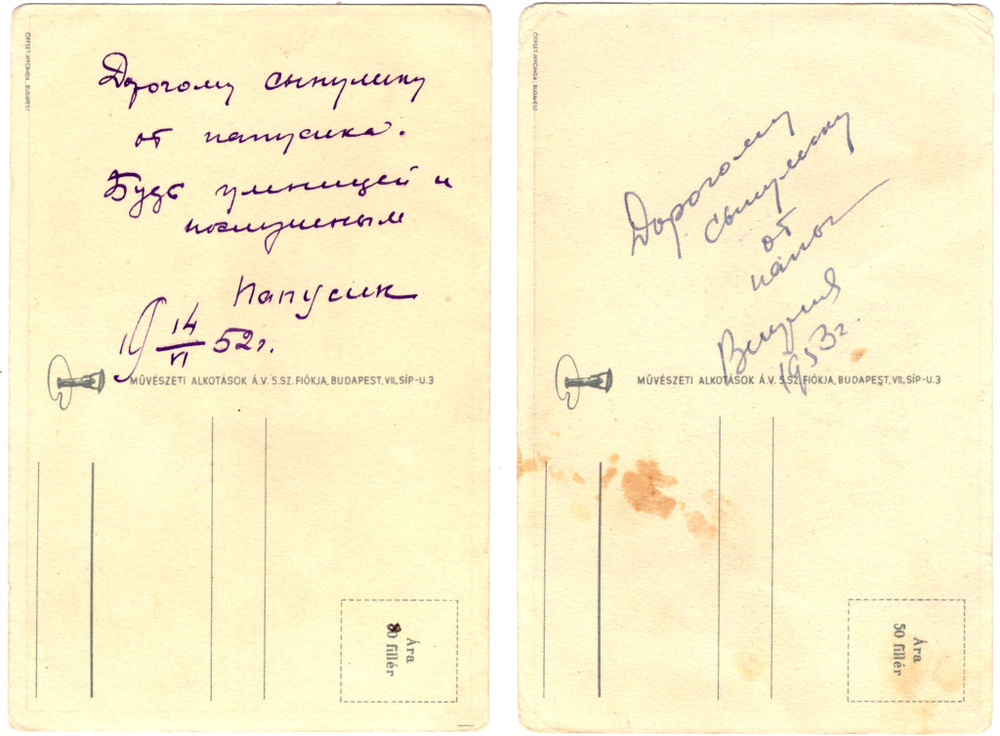 OFFSET-NYOMDA, BUDAPEST
Дорогому сынулику
от папусика.
Будь умницей и
послушеным
Папусик
19 14/VI 52г.
MŰVÉSZETI ALKOTÁSOK Á.V. 5.SZ. FIÓKJA, BUDAPEST, VII, SÍP-U.3
Ára
80 fillér
OFFSET-NYOMDA, BUDAPEST
Дорогому
сынулику
от
папы
1953г.
MŰVÉSZETI ALKOTÁSOK Á.V. 5.SZ. FIÓKJA, BUDAPEST, VII, SÍP-U.3
Ára
50 fillér